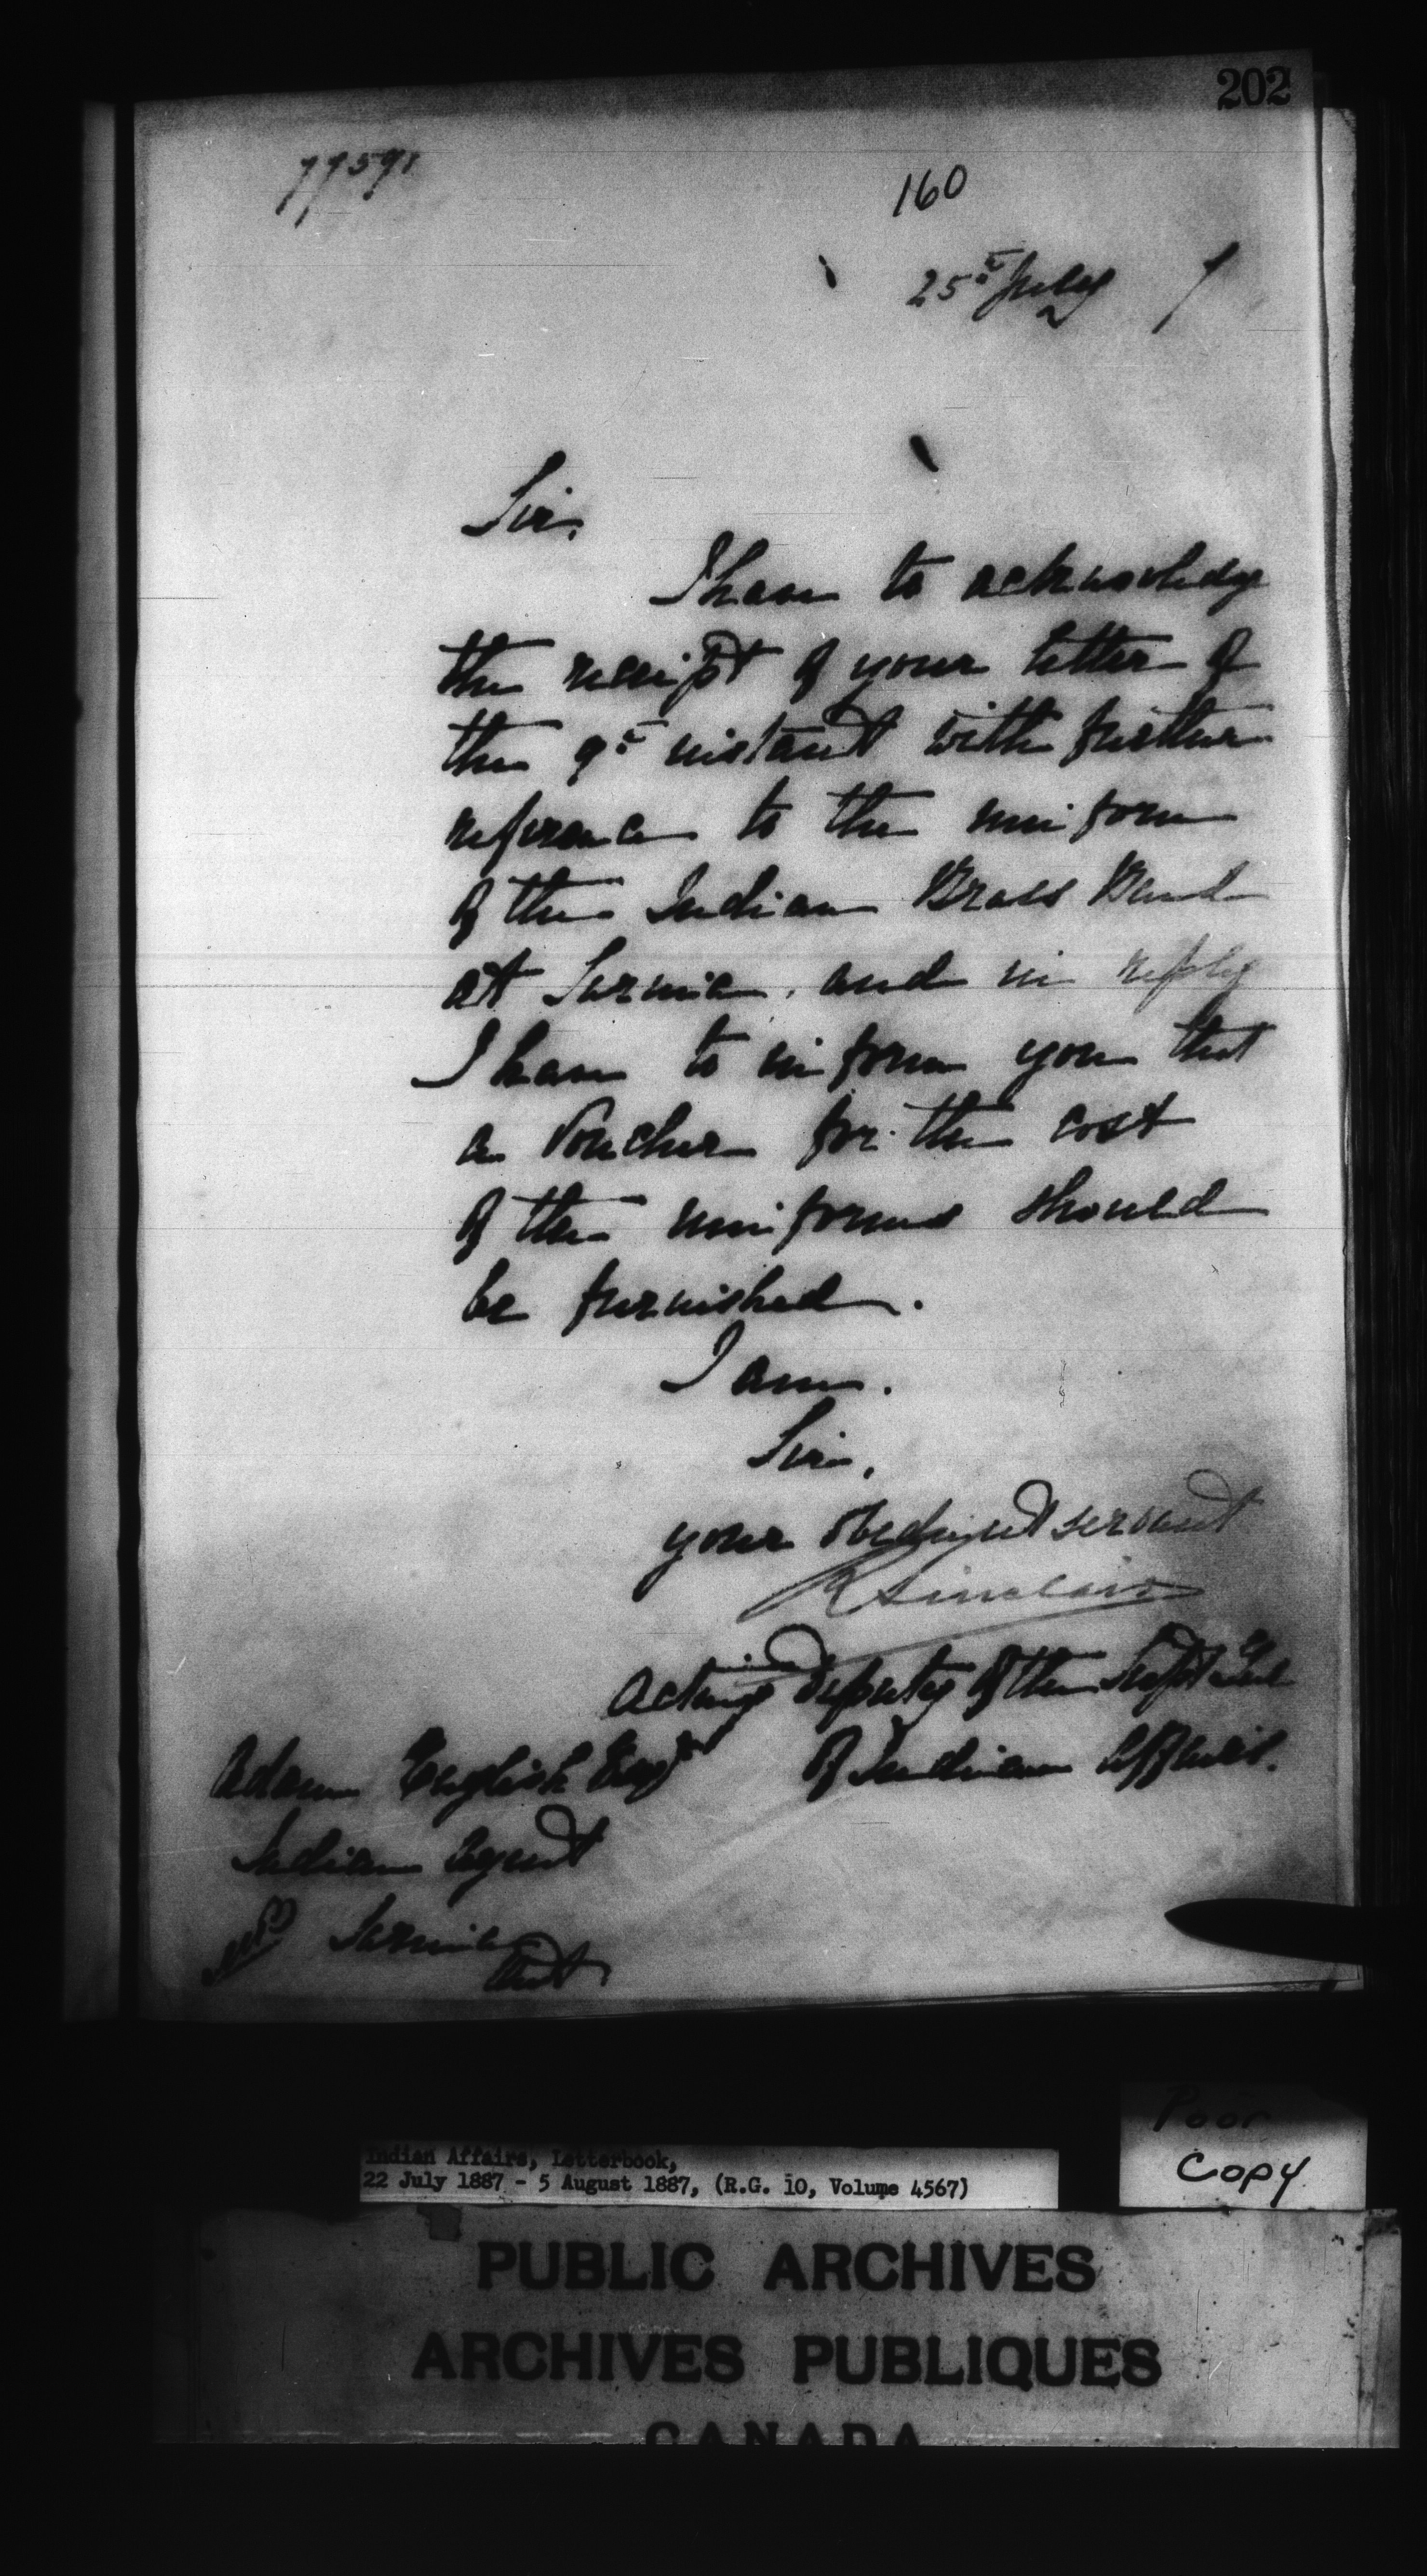 202
77591
160
25th July 7
Sir,
I have to acknowledge
the receipt of your letter of
the 9th instant with further
reference to the uniform
of the Indian Brass Band
at Sarnia, and in reply
I have to inform you that
a Voucher for the cost
of the uniforms should
be furnished.
I am.
Sir,
your obedient servant
R Sinclair
Acting Deputy of the Supt Genl
of Indian Affairs.
Adam English Esqr
Indian Agent
Sarnia
Ont
Poor
Copy
Indian Affairs, Letterbook,
22 July 1887 - 5 August 1887, (R.G. 10, Volume 4567)
PUBLIC ARCHIVES
ARCHIVES PUBLIQUES
CANADA